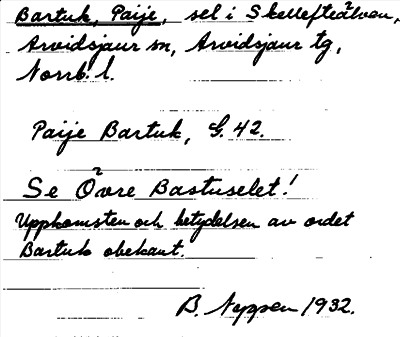 Bartuk, Paije, sel i Skellefteälven,
Arvidsjaur sn, Arvidsjaur tg,
Norrb. l.
Paije Bartuk, G. 42.
Se Övre Bastuselet!
Uppkomsten och betydelsen av ordet
Bartuk obekant.
B. Nyppen 1932.